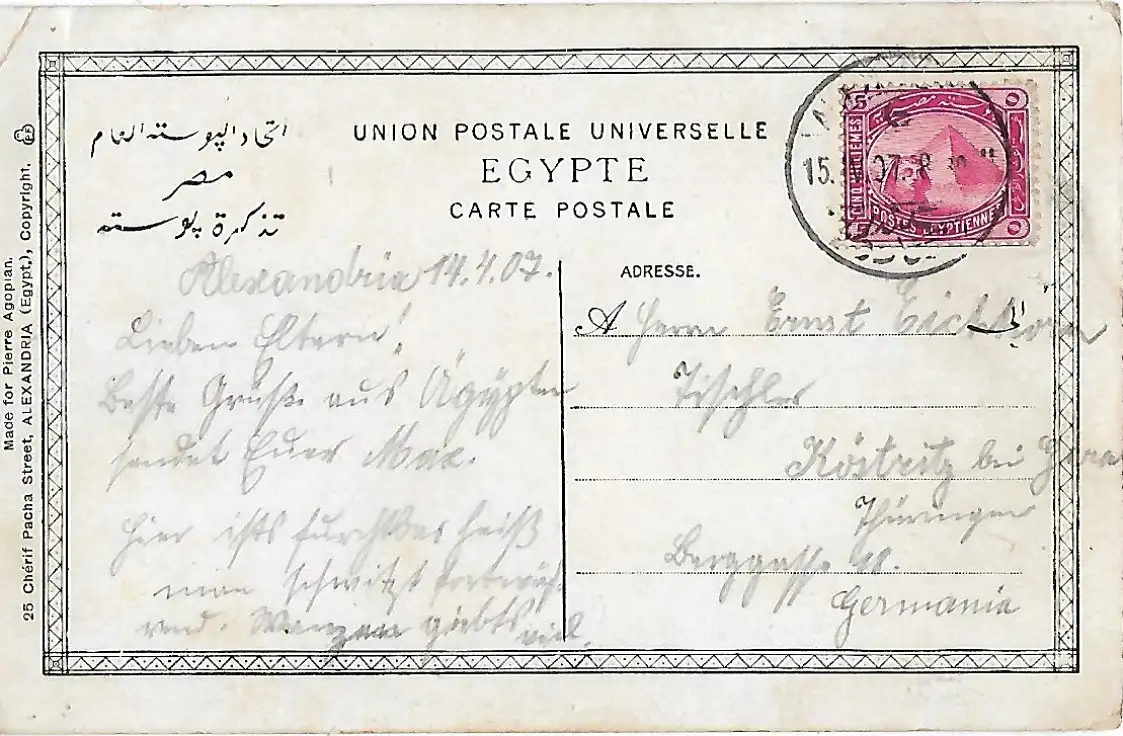 اتحاد البوسته العام
مصر
تذكرة بوسته
UNION POSTALE UNIVERSELLE
EGYPTE
CARTE POSTALE
ADRESSE.
15.IV.07.8
CINQ MILLIEMES
5
5
٥
٥
POSTES EGYPTIENNES
Alexandria 14.4.07.
Lieben Eltern!
Beste Grüße aus Ägypten
sendet Euer Max.
Hier ists furchtbar heiß
man schwitzt fortwäh-
rend. Wanzen giebts viel.
A Herrn Ernst Eichhorn
الى
Tischler
Köstritz bei Gera
Thüringen
Berggasse
Germania
Made for Pierre Agopian.
25 Chérif Pacha Street, ALEXANDRIA (Egypt.), Copyright.